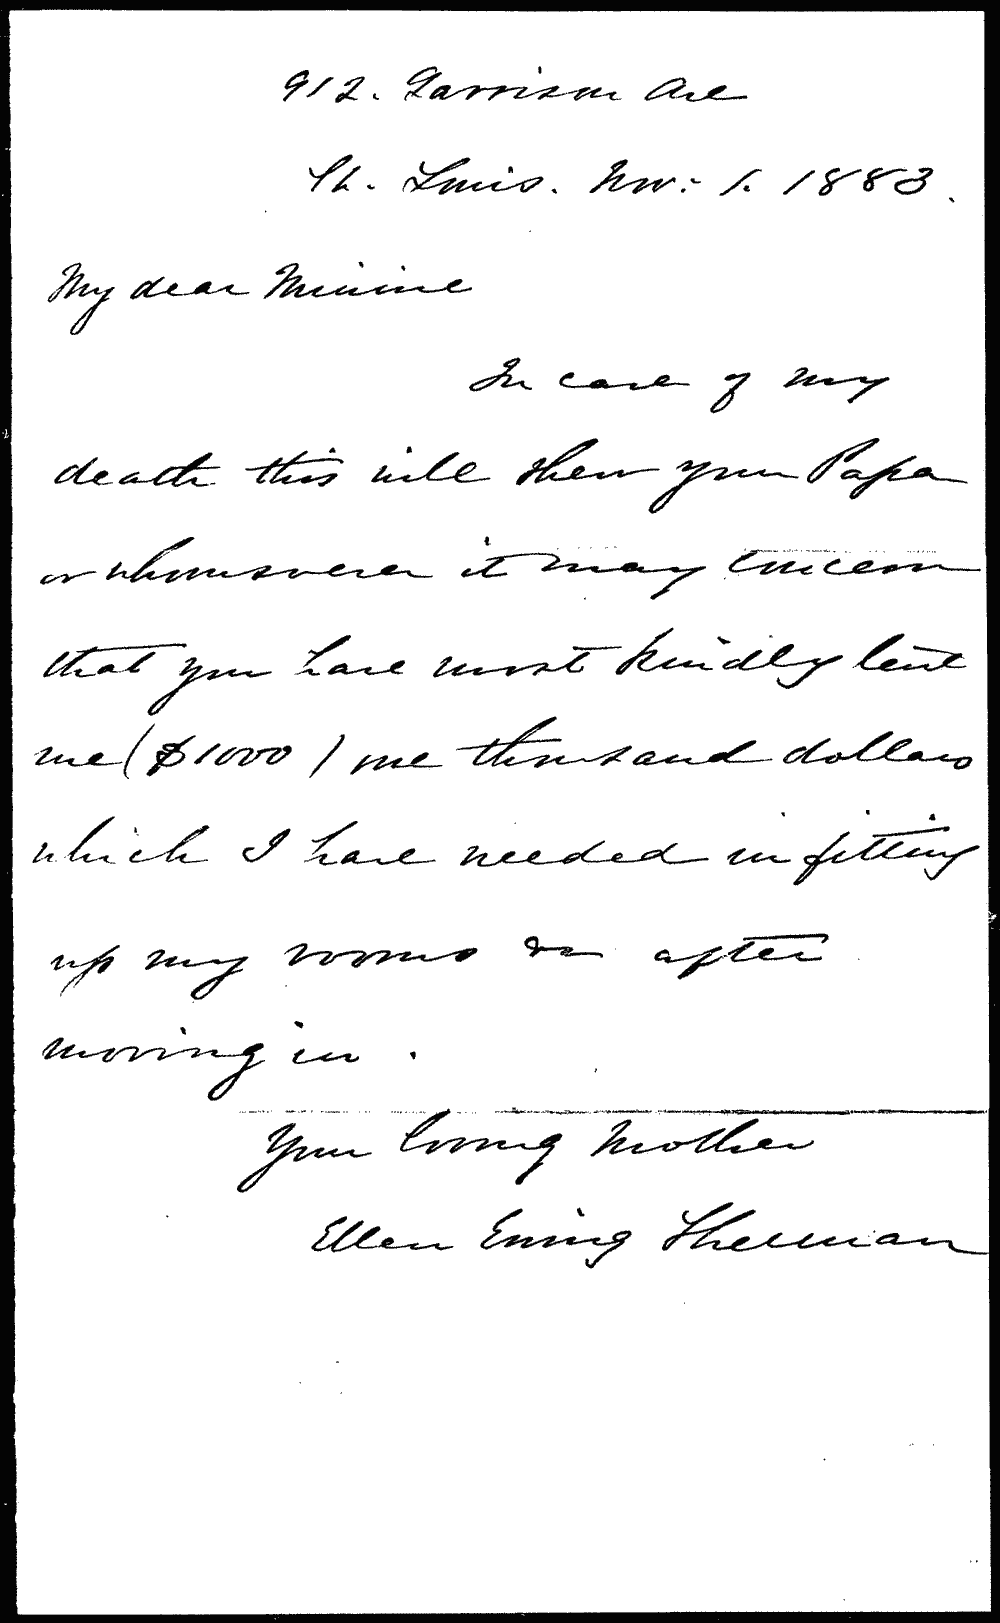 912. Garrison Ave
St. Louis. Nov: 1. 1883.
My dear Minnie
In case of my
death this will shew your Papa
or whomsoever it may concern
that you have most kindly lent
me ($1000) one thousand dollars
which I have needed in fitting
up my rooms &c after
moving in.
Your loving Mother
Ellen Ewing Sherman